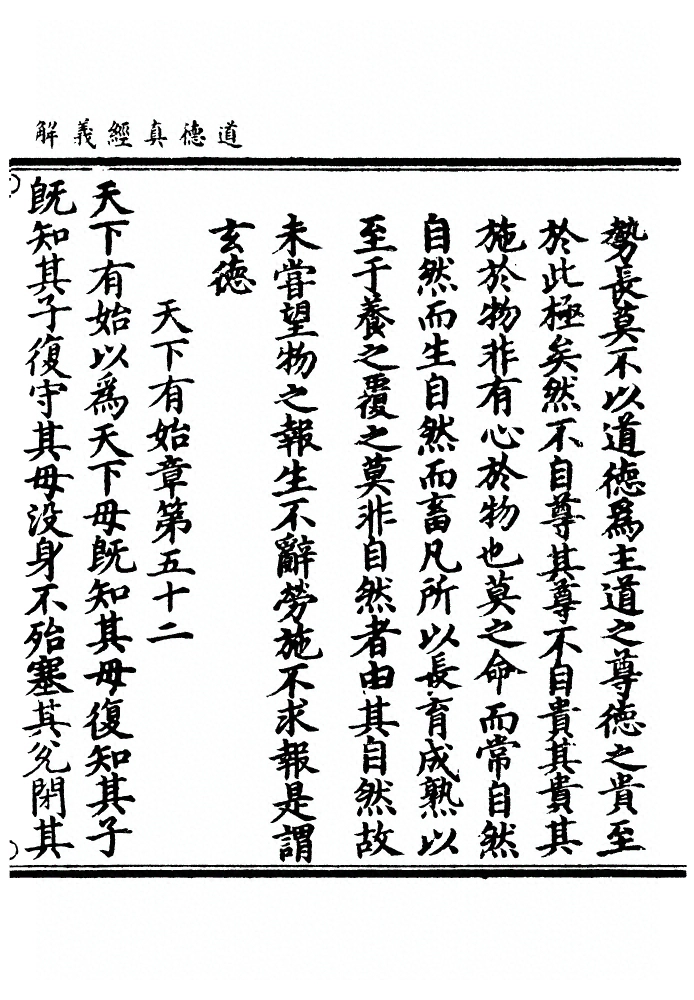 道德真經義解
勢長莫不以道德爲主道之尊德之貴至
於此極矣然不自尊其尊不自貴其貴其
施於物非有心於物也莫之命而常自然
自然而生自然而畜凡所以長育成熟以
至于養之覆之莫非自然者由其自然故
未嘗望物之報生不辭勞施不求報是謂
玄德
天下有始章第五十二
天下有始以爲天下母旣知其母復知其子
旣知其子復守其母没身不殆塞其兊閉其